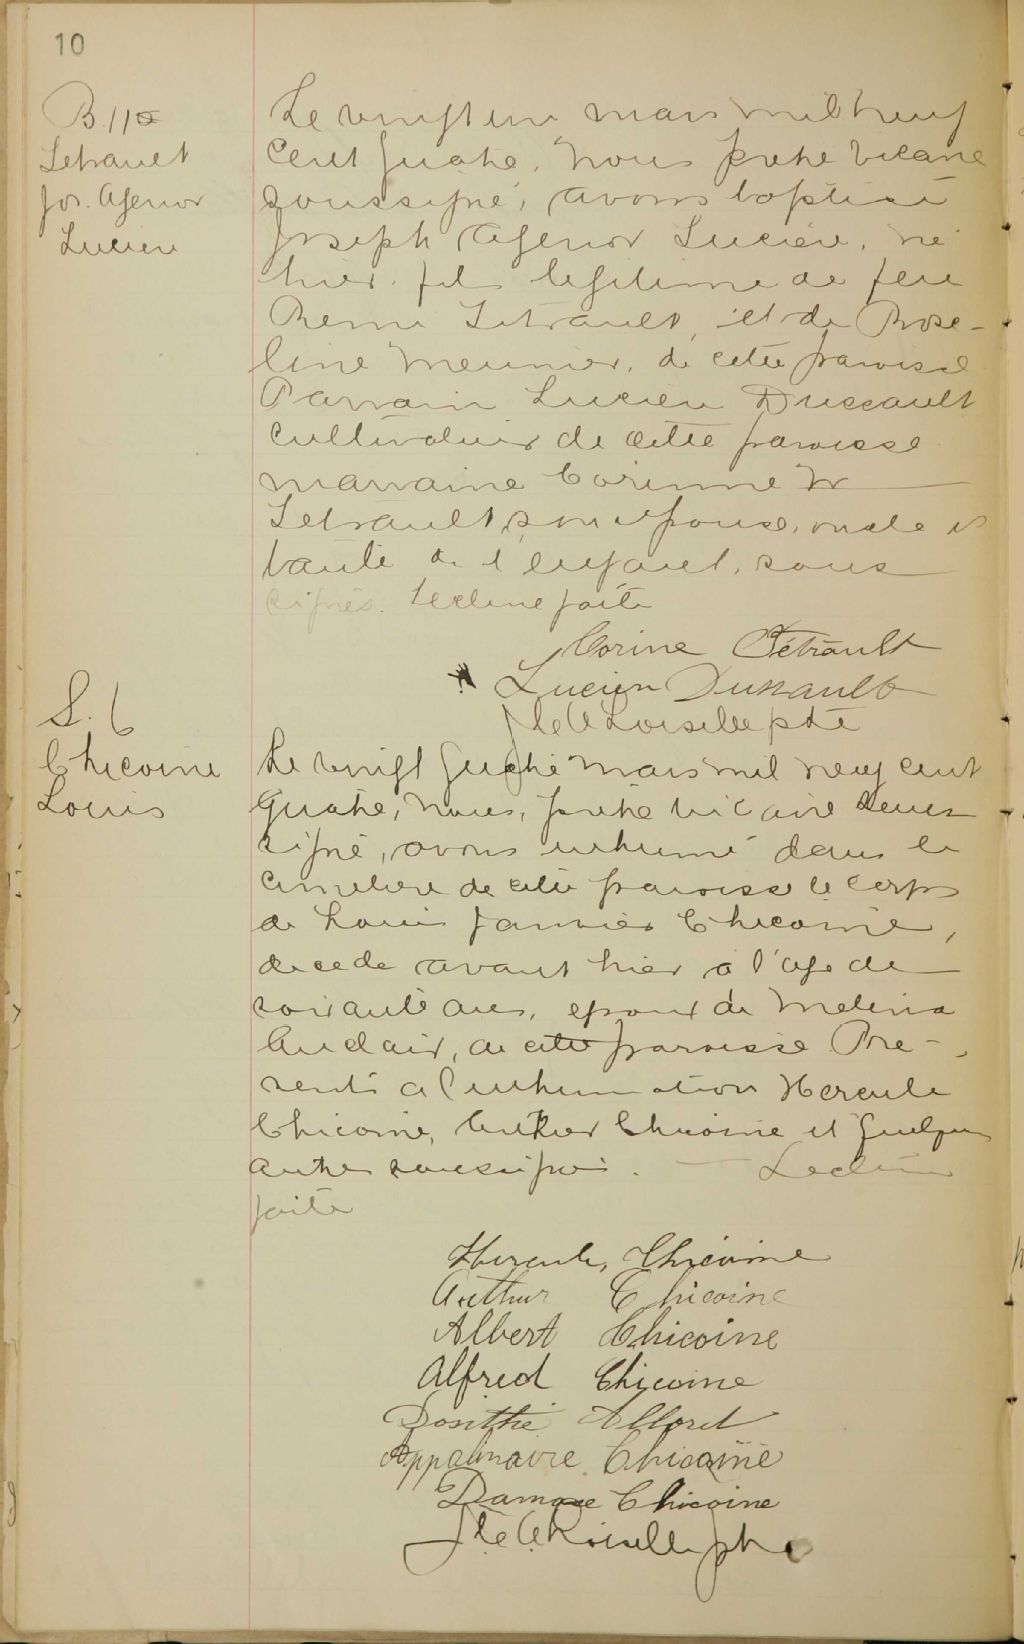 10
B. 11
Tetrault
Jos. Agenor
Lucien
Le vingt un mars mil neuf
cent quatre, nous pretre vicaire
soussigné, avons baptisé
Joseph Agenor Lucien, né
hier, fils legitime de feu
Remi Tetrault, et de Rose-
line Meunier, de cette paroisse
Parrain Lucien Dussault
cultivateur de cette paroisse
marraine Corinne
Tetrault son epouse, oncle et
tante de l'enfant, sous
signés. Lecture faite
Corine Tétrault
Lucien Dussault
J. C. A. Loiselle ptre
S. 6
Chicoine
Louis
Le vingt quatre mars mil neuf cent
quatre, nous, pretre vicaire sous
signé, avons inhumé dans le
cimetiere de cette paroisse le corps
de Louis Chicoine,
decede avant hier a l'age de
soixante ans, epoux de Melina
Auclair, de cette paroisse Pre-
sents a l'inhumation Hercule
Chicoine, Arthur Chicoine et quelques
autres soussignés. Lecture
faite
Hercule Chicoine
Arthur Chicoine
Albert Chicoine
Alfred Chicoine
Dosithé
Appolinaire Chicoine
Damase Chicoine
J. C. A. Loiselle ptre